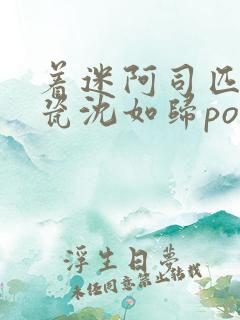 着迷阿司匹
瓷沈如归po
浮生日梦
未经同意禁止转载